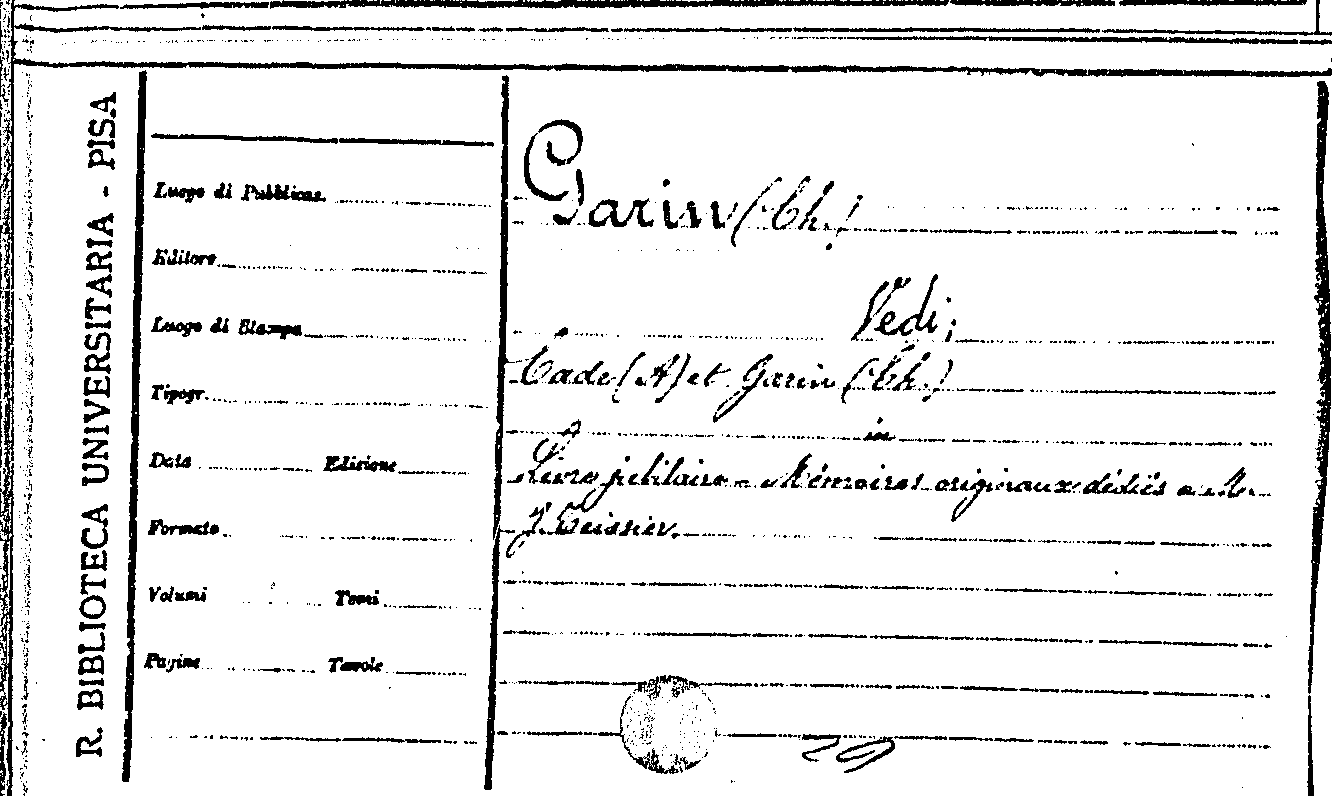 R. BIBLIOTECA UNIVERSITARIA - PISA
Luogo di Pubblicaz.
Editore
Luogo di Stampa
Tipogr.
Data Edizione
Formato
Volumi Tomi
Pagine Tavole
Garin (Ch.)
Vedi:
Cade (A) et Garin (Ch.)
in
Livre jubilaire - Mémoires originaux dédiés a Mr
J. Teissier.